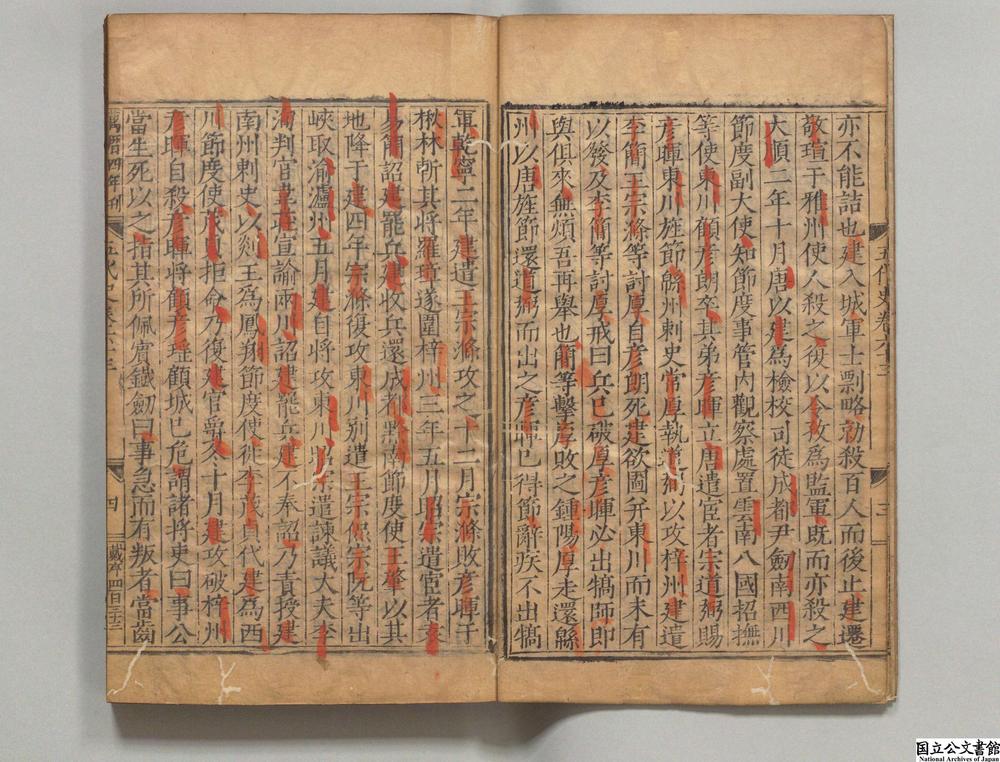 亦不能詰也建入城軍士剽略勑殺百人而後止建遷
敬瑄于雅州使人殺之後以令孜為監軍既而亦殺之
大順二年十月唐以建為檢校司徒成都尹劒南西川
節度副大使知節度事管内觀察處置雲南八國招撫
等使東川顧彦朗卒其弟彦暉立唐遣宦者宗道弼賜
彦暉東川旌節緜州刺史常厚執道弼以攻梓州建遣
李簡王宗滌等討厚自彦朗死建欲圖并東川而未有
以發及李簡等討厚戒曰兵已破厚彦暉必出犒師即
與俱來無煩吾再舉也簡等擊厚敗之鍾陽厚走還緜
州以唐旌節還道弼而出之彦暉已得節辭疾不出犒
五代史卷六十三
三
軍乾寧二年建遣王宗滌攻之十二月宗滌敗彦暉于
楸林斬其將羅璋遂圍梓州三年五月昭宗遣宦者袁
易簡詔建罷兵建收兵還成都黔南節度使王肇以其
地降于建四年宗滌復攻東川别遣王宗侃宗阮等出
峽取渝瀘州五月建自將攻東川昭宗遣諫議大夫李
洵判官韋莊宣諭兩川詔建罷兵建不奉詔乃責授建
南州刺史以郯王為鳳翔節度使徙李茂貞代建為西
川節度使茂貞拒命乃復建官爵冬十月建攻破梓州
彦暉自殺彦暉將顧彦瑤顧城已危謂諸將吏曰事公
當生死以之指其所佩賓鐵劒曰事急而有叛者當齒
萬曆四年刊
五代史卷六十三
四
國立公文書館
National Archives of Japan